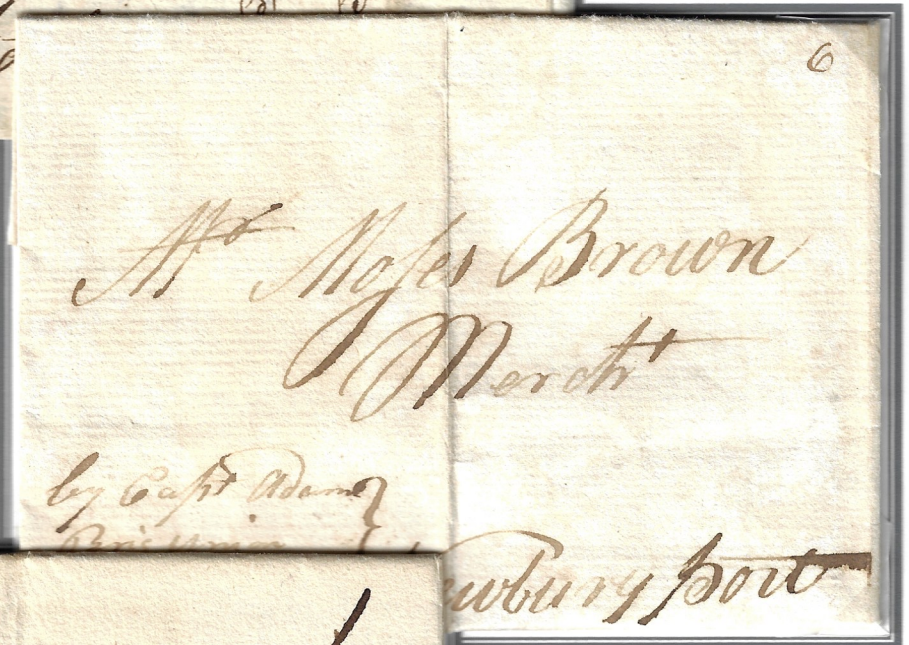 6
Mr Moses Brown
Mercht
by Capt Adams
wbury port